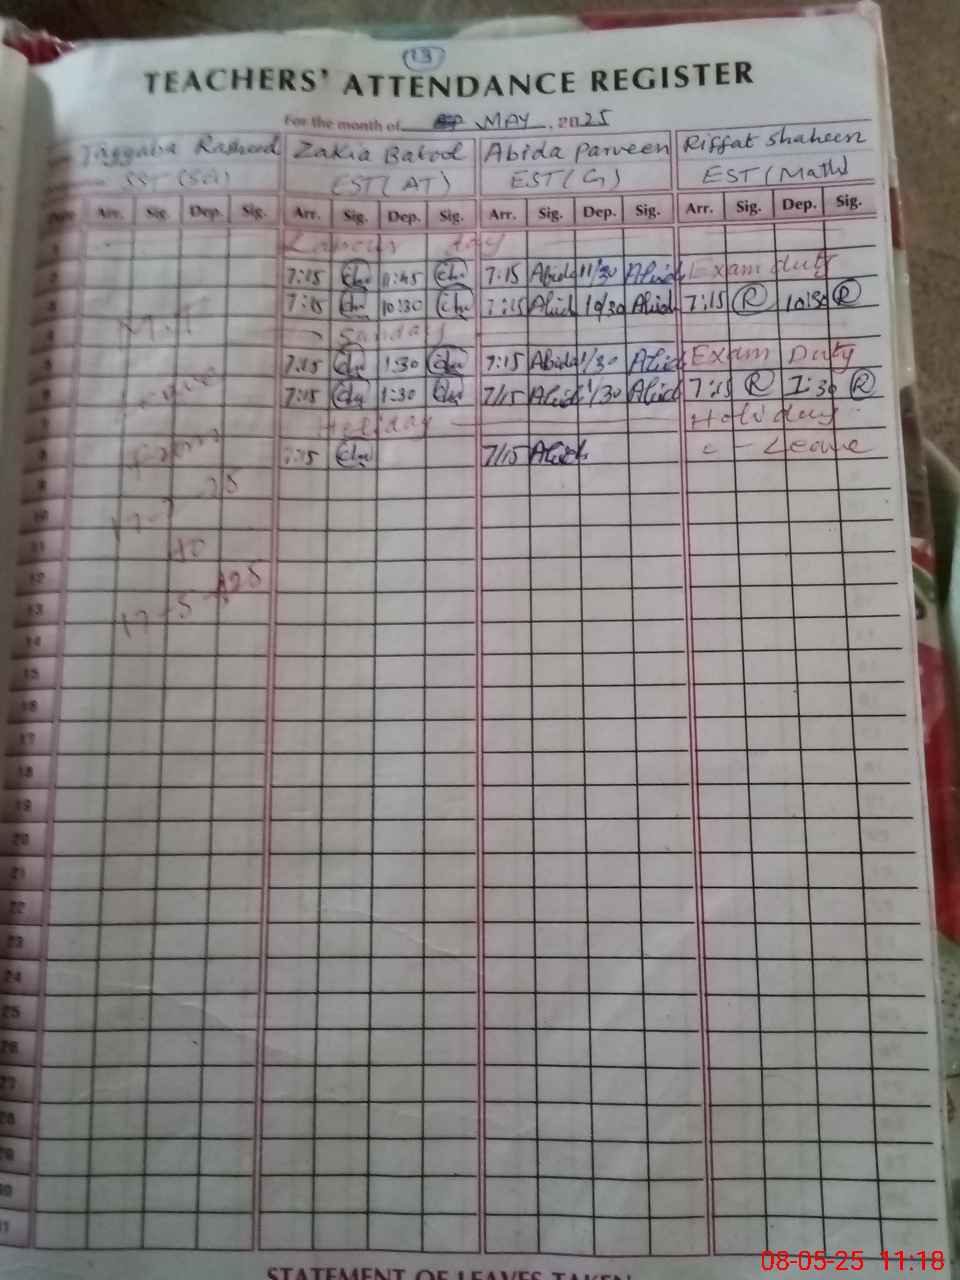 13
TEACHERS' ATTENDANCE REGISTER
For the month of MAY, 2025
Rasheed Zakia Batool Abida Parveen Riffat Shaheen
SST EST (AT) EST (G) EST (Math)
Date Arr. Sig. Dep. Sig. Arr. Sig. Dep. Sig. Arr. Sig. Dep. Sig. Arr. Sig. Dep. Sig.
1 Labour day
2 7:15 11:45 7:15 Abida 11/30 Abida Exam duty
3 7:15 10:30 7:15 Abida 10/30 Abida 7:15 R 10:30 R
4 Sunday
5 7:15 1:30 7:15 Abida 1/30 Abida Exam Duty
6 7:15 1:30 7/15 Abida 1/30 Abida 7:15 R 1:30 R
7 Holiday Holiday
8 7:15 7/15 Abida C - Leave
Leave
from
to
17-5-25
9
10
11
12
13
14
15
16
17
18
19
20
21
22
23
24
25
26
27
28
29
30
31
STATEMENT OF LEAVES TAKEN
08-05-25 11:18